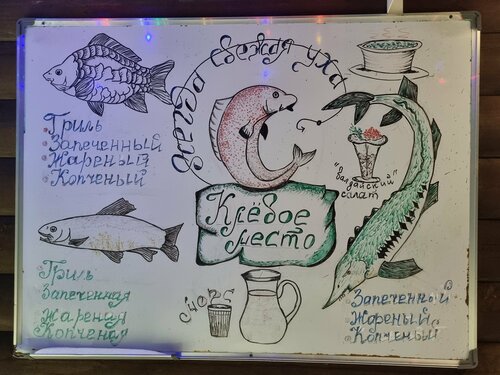 Всегда свежая уха
Гриль
Запеченный
Жареный
Копченый
"Валдайский"
салат
Клёвое
место
Гриль
Запеченная
Жареная
Копченая
Морс
Запеченный
Жареный
Копченый